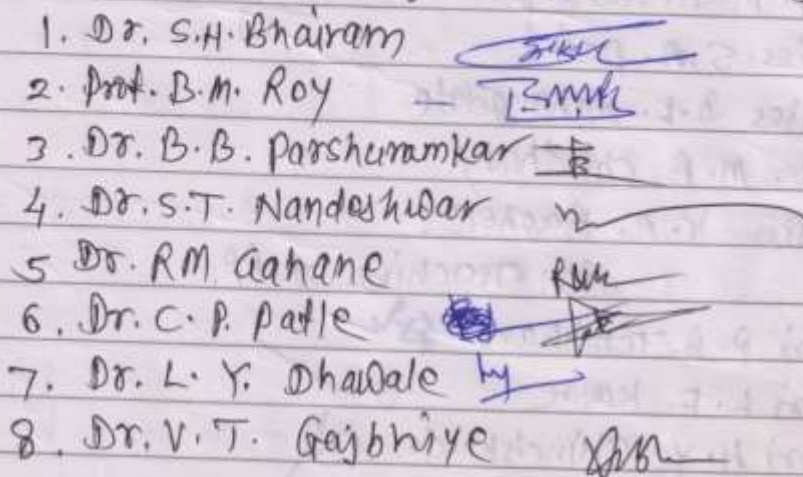 1. Dr. S.H. Bhairam
2. Prof. B.M. Roy
3. Dr. B.B. Parshuramkar
4. Dr. S.T. Nandeshwar
5 Dr. RM Gahane
6. Dr. C.P. Patle
7. Dr. L.Y. Dhawale
8. Dr. V.T. Gajbhiye